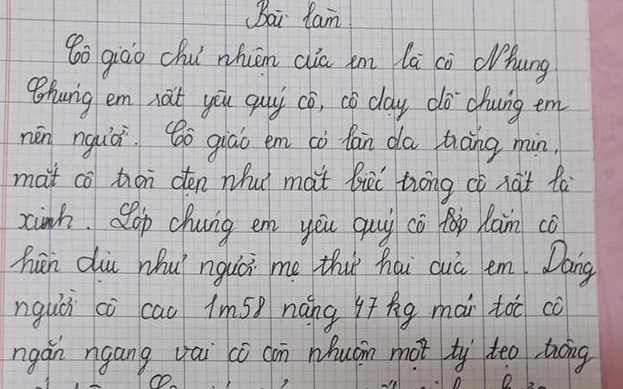 Bài làm
Cô giáo chủ nhiệm của em là cô Nhung
Chúng em rất yêu quý cô, cô dạy dỗ chúng em
nên người. Cô giáo em có làn da trắng mịn,
mắt cô tròn đẹn như mắt biếc trông cô rất là
xinh. Lớp chúng em yêu quý cô lớp lắm cô
hiền dịu như người mẹ thứ hai của em. Dáng
người cô cao 1m58 nặng 47 kg mái tóc cô
ngắn ngang vai cô còn nhuộm một tý tẹo trông